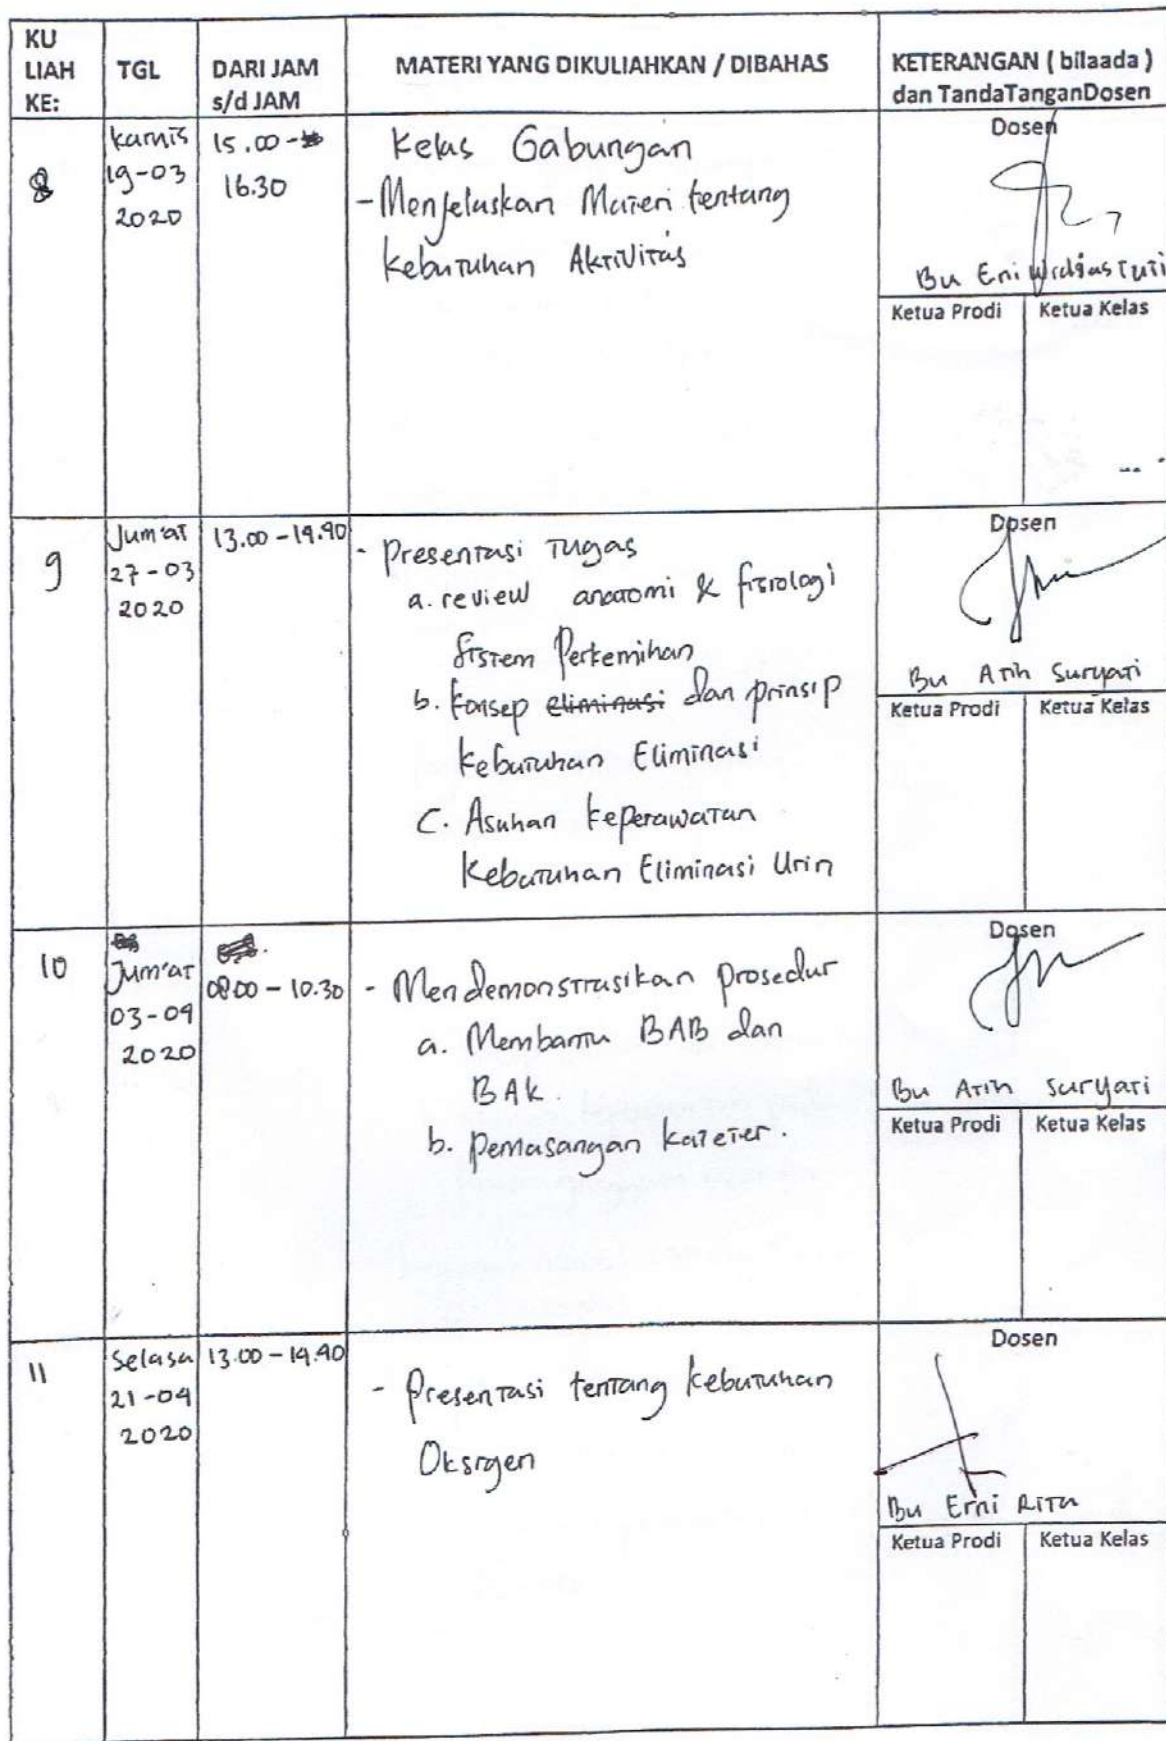 KU LIAH KE:
TGL
DARI JAM s/d JAM
MATERI YANG DIKULIAHKAN / DIBAHAS
KETERANGAN ( bilaada ) dan TandaTanganDosen
8
Kamis
19-03
2020
15.00 -
16.30
Kelas Gabungan
- Menjelaskan Materi tentang
kebutuhan Aktivitas
Dosen
Bu Eni Widiastuti
Ketua Prodi
Ketua Kelas
9
Jum'at
27-03
2020
13.00 - 14.40
- Presentasi Tugas
a. review anatomi & fisiologi
Sistem Perkemihan
b. konsep eliminasi dan prinsip
kebutuhan Eliminasi
C. Asuhan keperawatan
Kebutuhan Eliminasi Urin
Dosen
Bu Atih Suryati
Ketua Prodi
Ketua Kelas
10
Jum'at
03-04
2020
08.00 - 10.30
- Mendemonstrasikan prosedur
a. Membantu BAB dan
BAK.
b. Pemasangan kateter.
Dosen
Bu Atih Suryati
Ketua Prodi
Ketua Kelas
11
Selasa
21-04
2020
13.00 - 14.40
- Presentasi tentang kebutuhan
Oksigen
Dosen
Bu Erni Rita
Ketua Prodi
Ketua Kelas